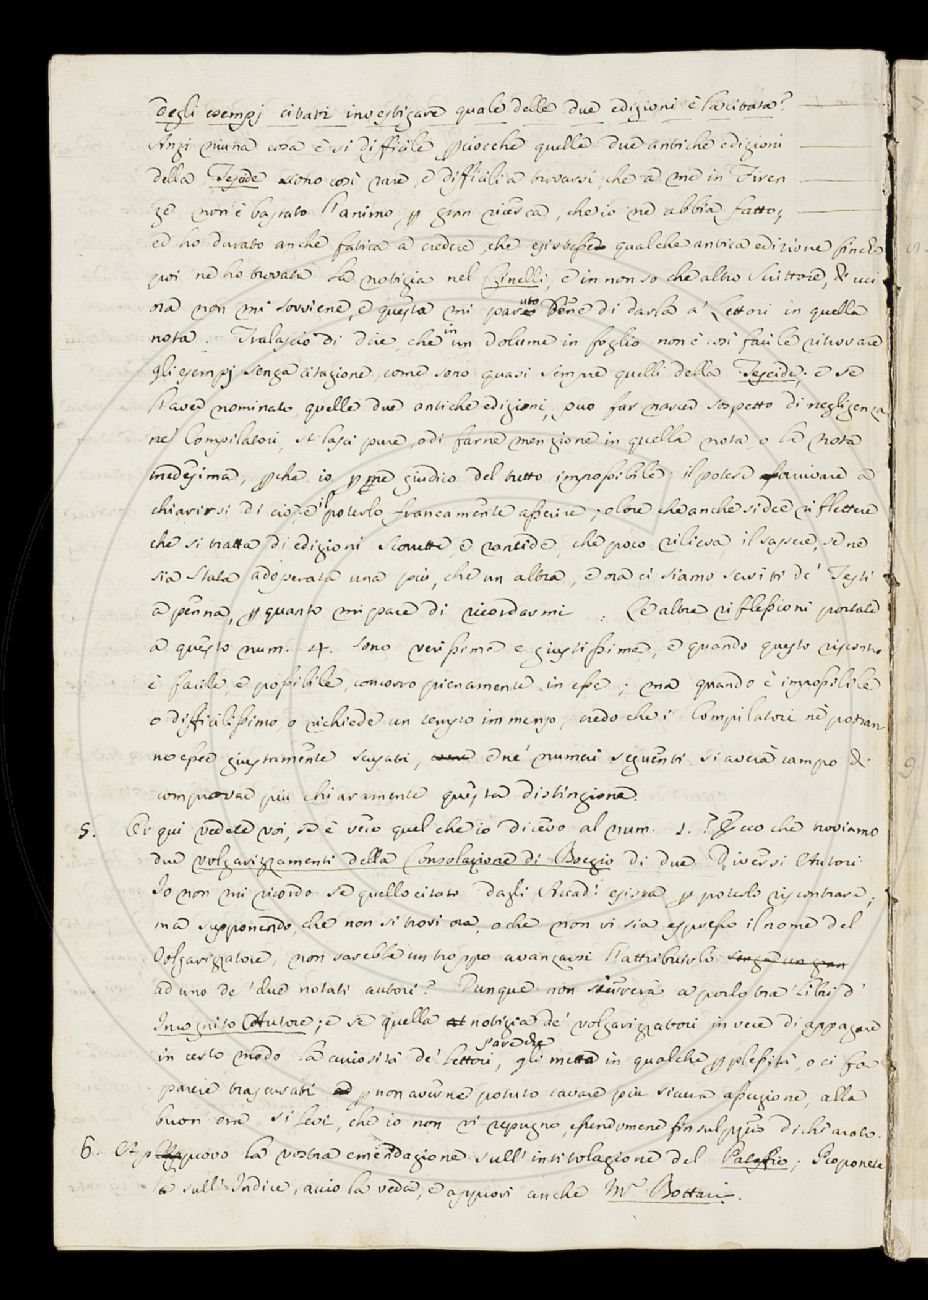 degli esempj citati investigare quale delle due edizioni è la citata?
Anzi niuna cosa è sì difficile pciocchè quelle due antiche edizioni
della Teseide sono così rare, e difficili a trovarsi, che a me in Firen
ze non è bastato l'animo p gran ricerca, che io ne abbia fatto,
ed ho durato anche fatica a credere, che esistesse qualche antica edizione finchè
poi ne ho trovata la notizia nel Cinelli, e in non so che altro Scrittore, di cui
ora non mi sovviene, e questa mi è paruto bene di darla a' Lettori in quella
nota. Tralascio di dire, che in un Volume in foglio non è così facile ritrovare
gli esempj senza citazione, come sono quasi sempre quelli della Teseide; e se
l'aver nominato quelle due antiche edizioni, può far nascer sospetto di negligenza
ne' Compilatori, si lasci pure, o di farne menzione in quella nota, o la nota
medesima, pchè io p me giudico del tutto impossibile il potere arrivare a
chiarirsi di ciò, e il poterlo francamente asserire; oltre che anche si dee riflettere
che si tratta di edizioni scorrette, e rancide, che poco rilieva il sapere, se ne
sia stata adoperata una più, che un altra, e ora ci siamo serviti de' Testi
a penna, p quanto mi pare di ricordarmi. Le altre riflessioni portate
a questo num. 4. sono verissime e giustissime, e quando questo riscontro
è facile, e possibile, concorro pienamente in esse; ma quando è impossibile
o difficilissimo, o richiede un tempo immenso, credo che i Compilatori ne potran
no esser giustamente scusati, e ne' numeri seguenti si avrà campo di
comprovar più chiaramente questa distinzione.
5. Or qui vedete voi, se è vero quel che io dicevo al num. 1.? Ecco che troviamo
due volgarizzamenti della Consolazione di Boezio di due diversi Autori
Io non mi ricordo se quello citato dagli Accad.i esista p poterlo riscontrare;
ma supponendo, che non si trovi ora, o che non vi sia espresso il nome del
Volgarizzatore, non sarebbe un troppo avanzarsi l'attribuirlo senza un gran
ad uno de' due notati autori? Dunque non si avrà a porlo tra' Libri d'
Incognito Autore; e se quella notizia de' volgarizzatori in vece di appagare
in certo modo la curiosità de' Lettori, pare che gli metta in qualche pplessità, o ci fa
parere trascurati p non averne potuto cavare più sicura asserzione, alla
buon ora si levi, che io non vi repugno, essendomene fin sul ppio dichiarato.
6. Approvo la vostra emendazione sull'intitolazione del Pataffio; Proponete
la sull'Indice, acciò la veda, e approvi anche M.r Bottari.